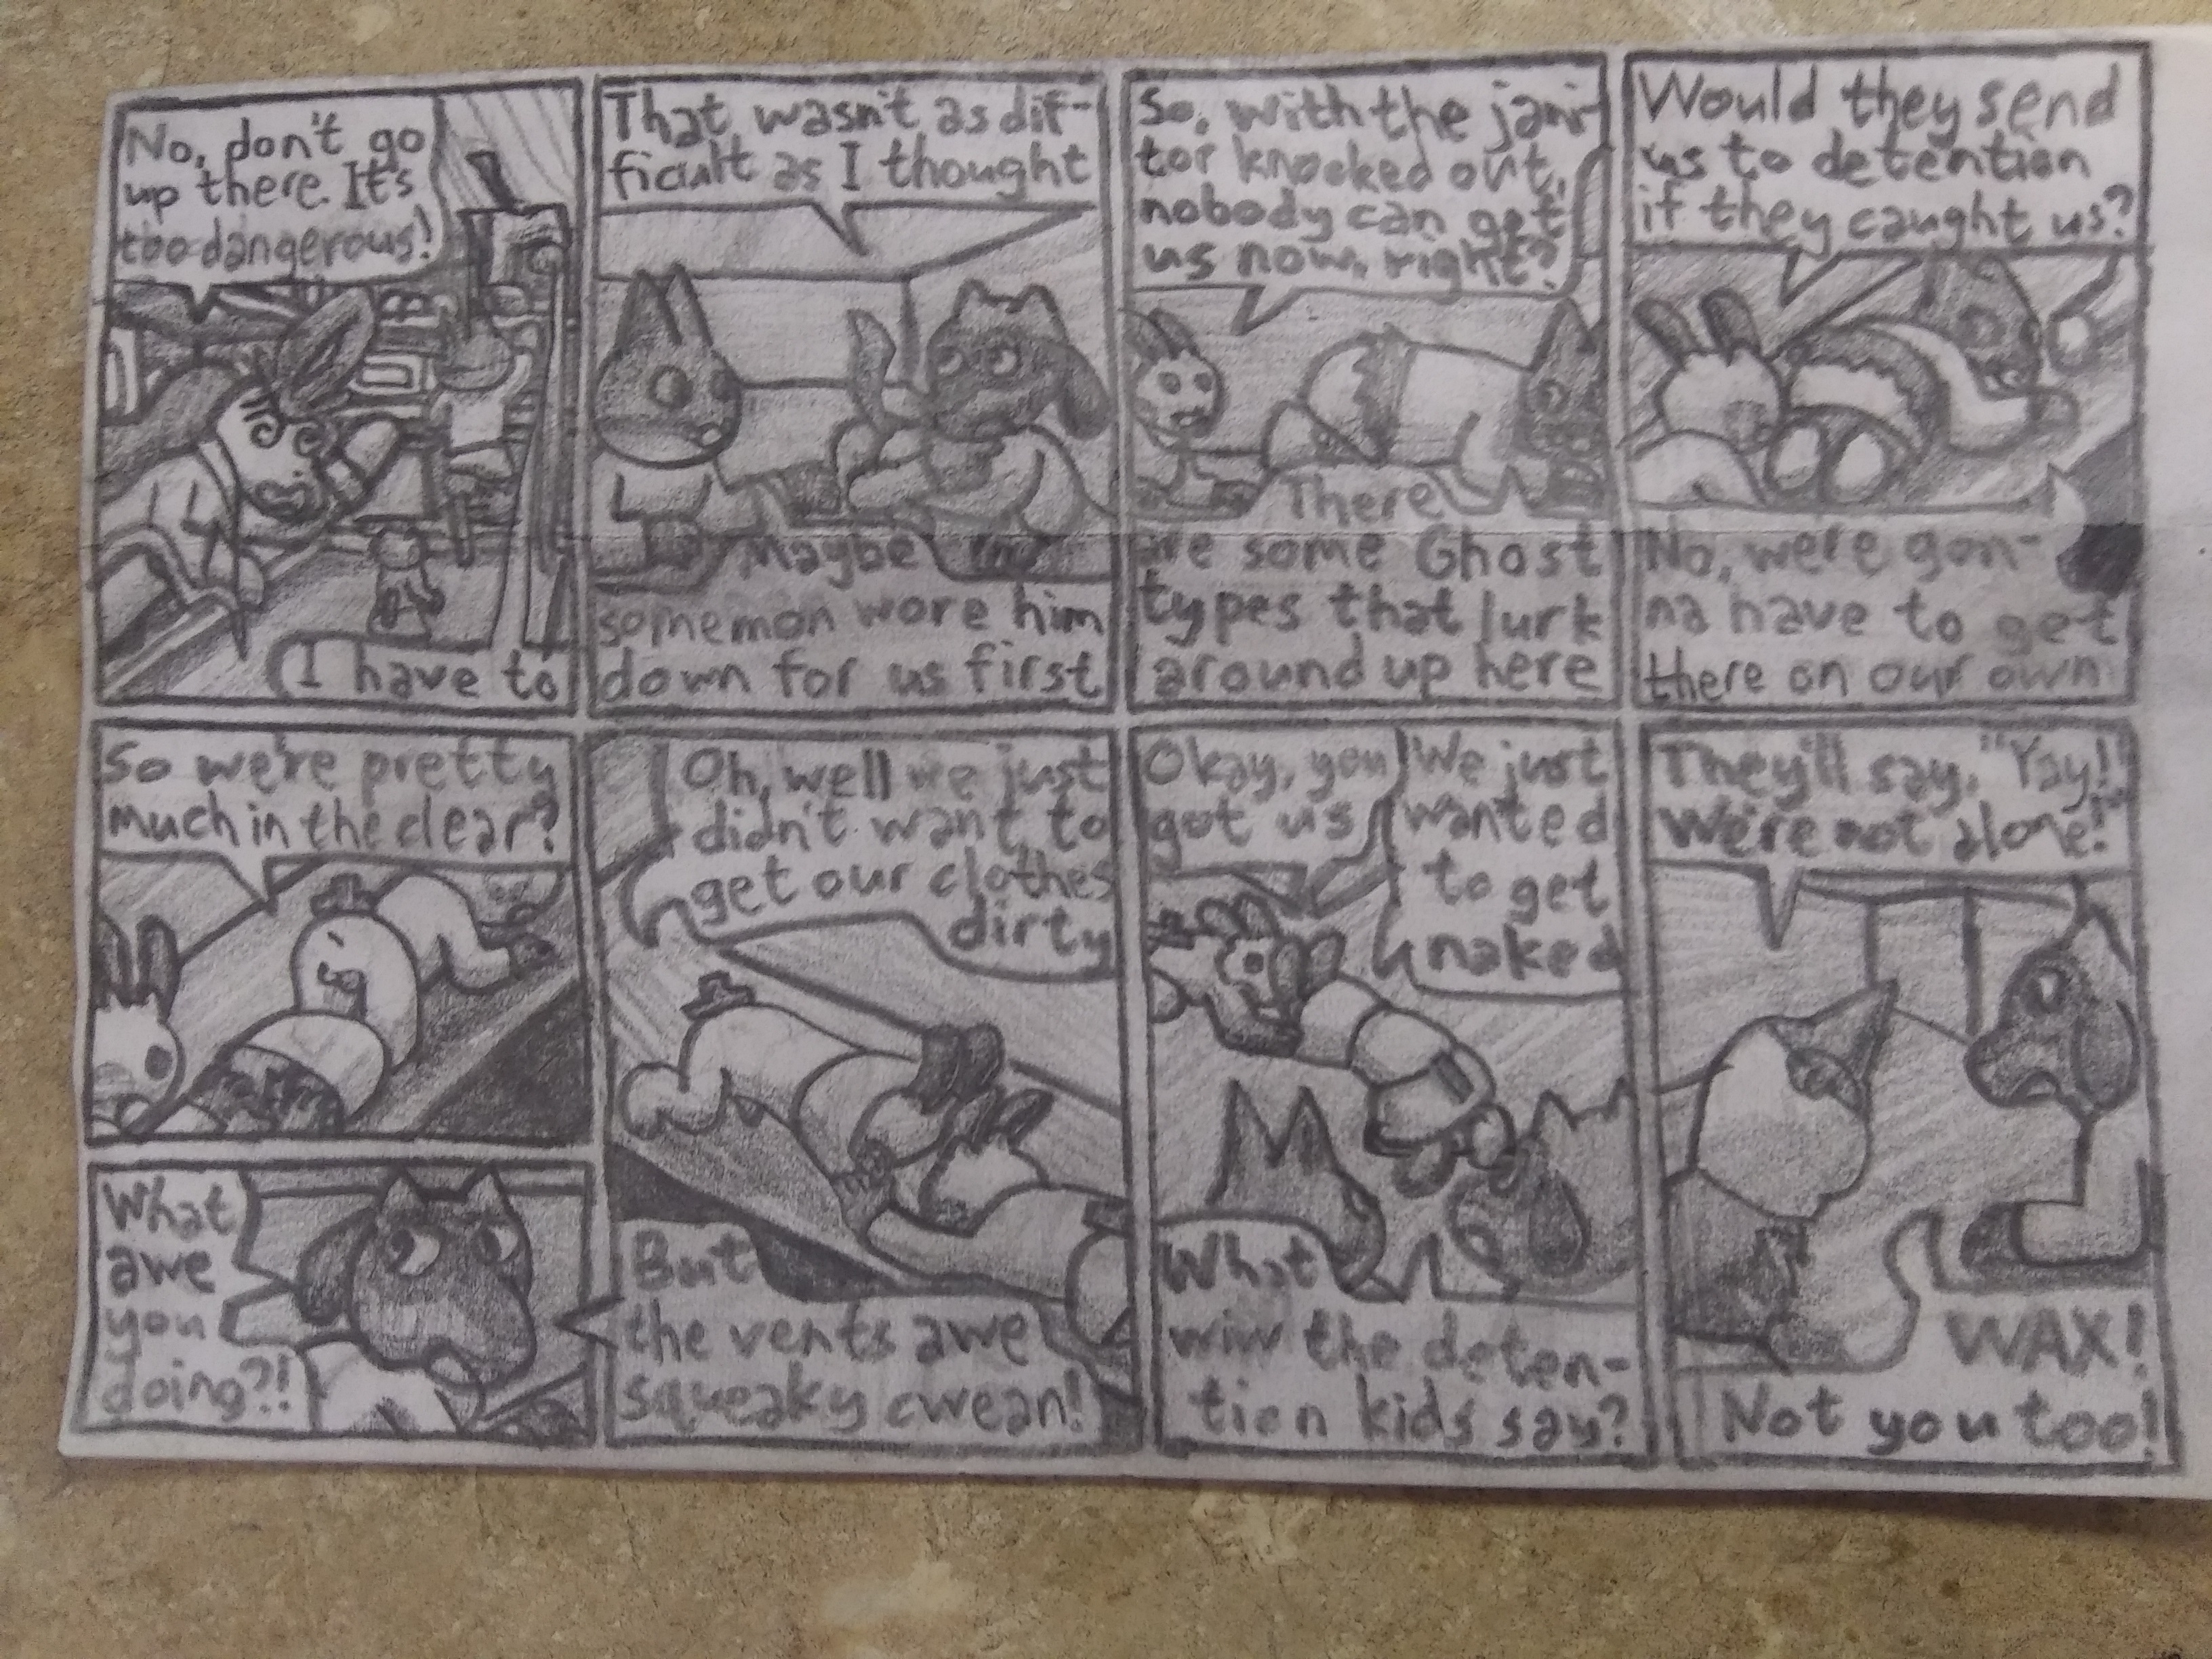 No, don't go
up there. It's
too dangerous!
I have to
That wasn't as dif-
ficult as I thought
Maybe
somemon wore him
down for us first
So, with the jani-
tor knocked out,
nobody can get
us now, right?
There
are some Ghost
types that lurk
around up here
Would they send
us to detention
if they caught us?
No, we're gon-
na have to get
there on our own
So we're pretty
much in the clear?
What
awe
you
doing?!
Oh, well we just
didn't want to
get our clothes
dirty
But
the vents awe
squeaky cwean!
Okay, you
got us
We just
wanted
to get
naked
What
wiw the deten-
tion kids say?
They'll say, "Yay!
We're not alone!"
WAX!
Not you too!